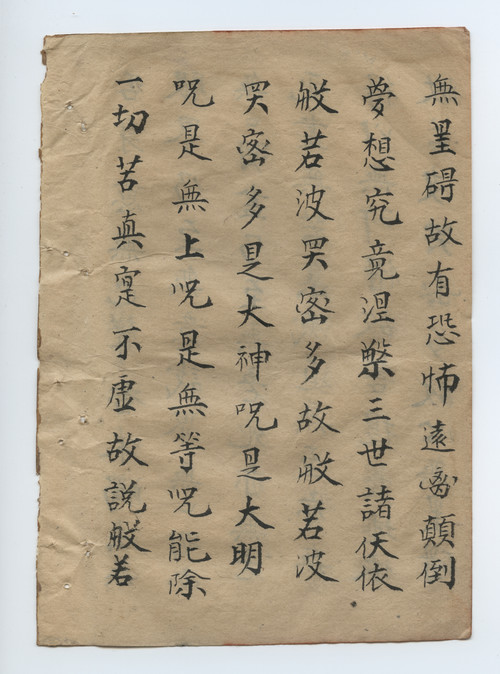 無罣碍故有恐怖遠离顛倒
夢想究竟涅槃三世諸仸依
般若波罗密多故般若波
罗密多是大神呪是大明
呪是無上呪是無等呪能除
一切苦真寔不虚故説般若